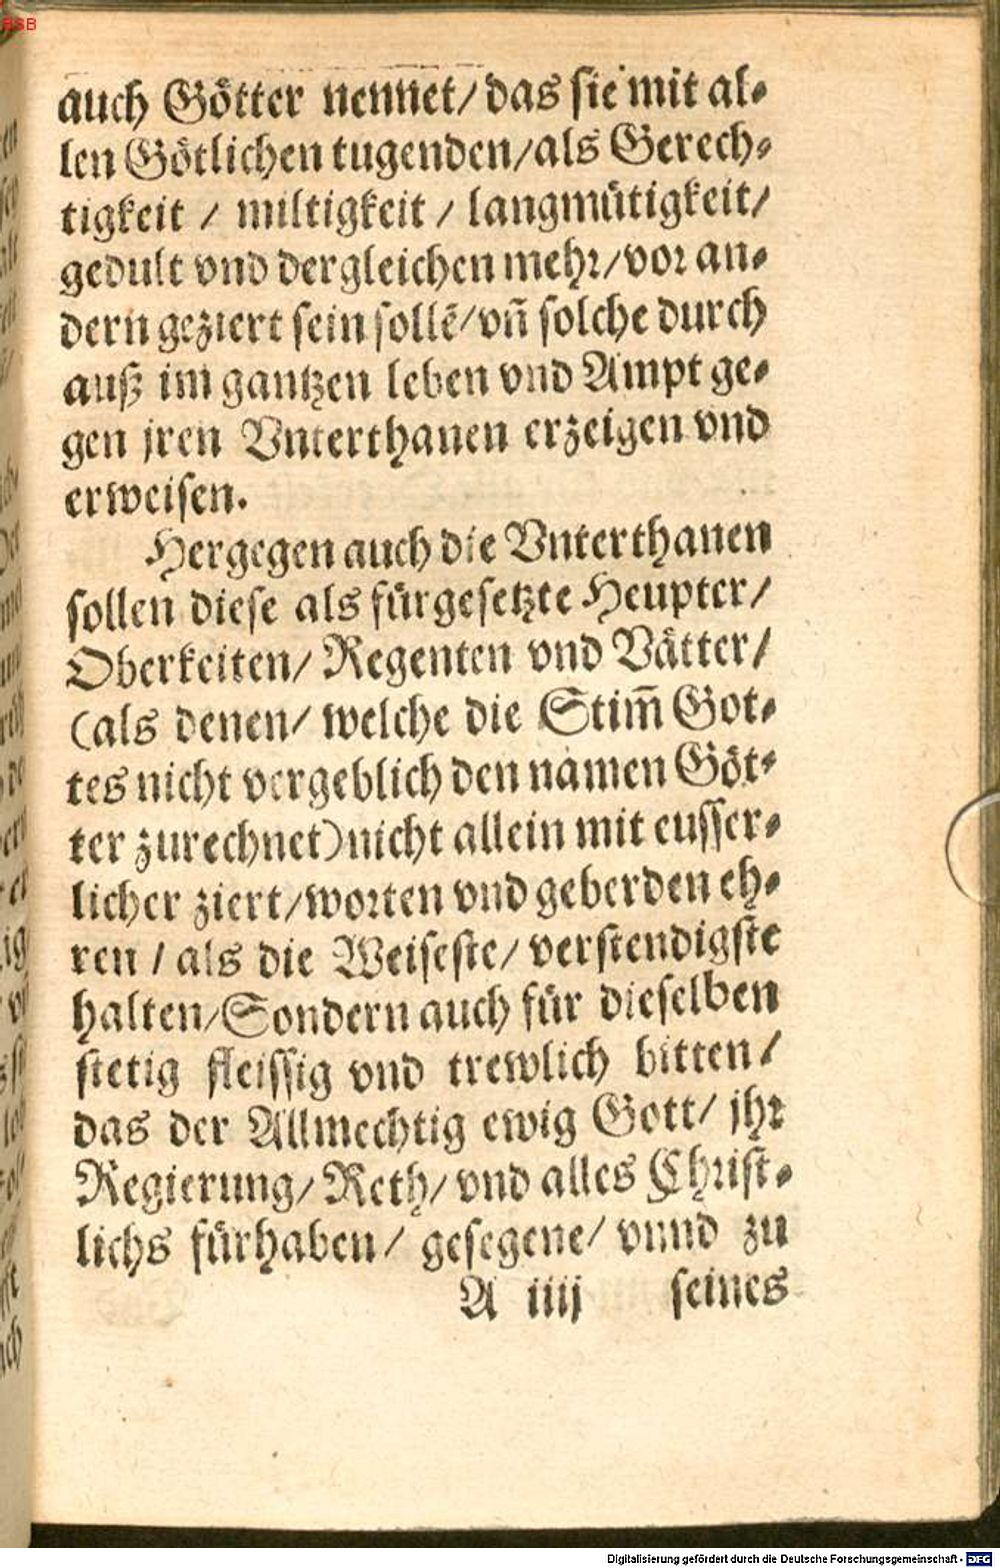 BSB
auch Götter nennet/ das sie mit al-
len Götlichen tugenden/als Gerech-
tigkeit / miltigkeit / langmütigkeit/
gedult vnd dergleichen mehr/vor an-
dern geziert sein sollē/vñ solche durch
auß im gantzen leben vnd Ampt ge-
gen jren Vnterthanen erzeigen vnd
erweisen.
Hergegen auch die Vnterthanen
sollen diese als fürgesetzte Heupter/
Oberkeiten/ Regenten vnd Vätter/
(als denen/ welche die Stim̃ Got-
tes nicht vergeblich den namen Göt-
ter zurechnet) nicht allein mit eusser-
licher ziert/worten vnd geberden eh-
ren / als die Weiseste/ verstendigste
halten/Sondern auch für dieselben
stetig fleissig vnd trewlich bitten/
das der Allmechtig ewig Gott/ jhr
Regierung/ Reth/ vnd alles Christ-
lichs fürhaben/ gesegene/ vnnd zu
A iiij seines
Digitalisierung gefördert durch die Deutsche Forschungsgemeinschaft - DFG